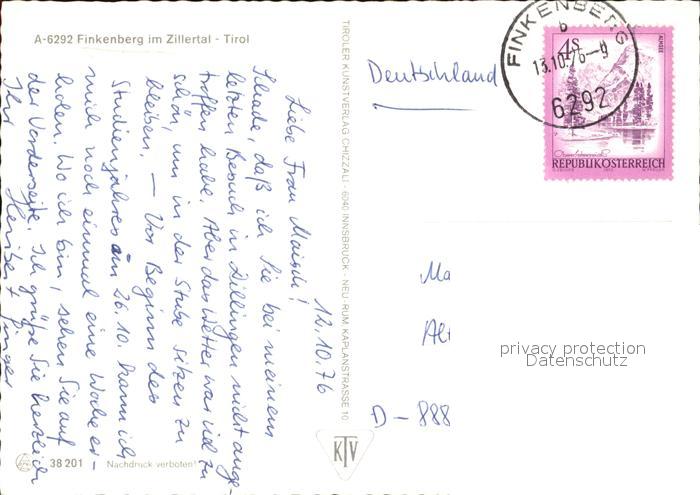 A-6292 Finkenberg im Zillertal - Tirol
12.10.76
Liebe Frau Maisch!
Schade, daß ich Sie bei meinem
letzten Besuch in Dillingen nicht ange-
troffen habe. Aber das Wetter war viel zu
schön, um in der Stube sitzen zu
bleiben. — Vor Beginn des
Studienjahres am 26.10. kann ich
mich noch einmal eine Woche er-
holen. Wo ich bin, sehen Sie auf
der Vorderseite. Ich grüße Sie herzlich
Ihr Heribert
38 201
Nachdruck verboten!
TIROLER KUNSTVERLAG CHIZZALI · 6040 INNSBRUCK · NEU-RUM KAPLANSTRASSE 10
KTV
Deutschland
FINKENBERG
b
13.10.76-9
6292
4S
ALMSEE
REPUBLIK ÖSTERREICH
Ma
D - 888
privacy protection
Datenschutz